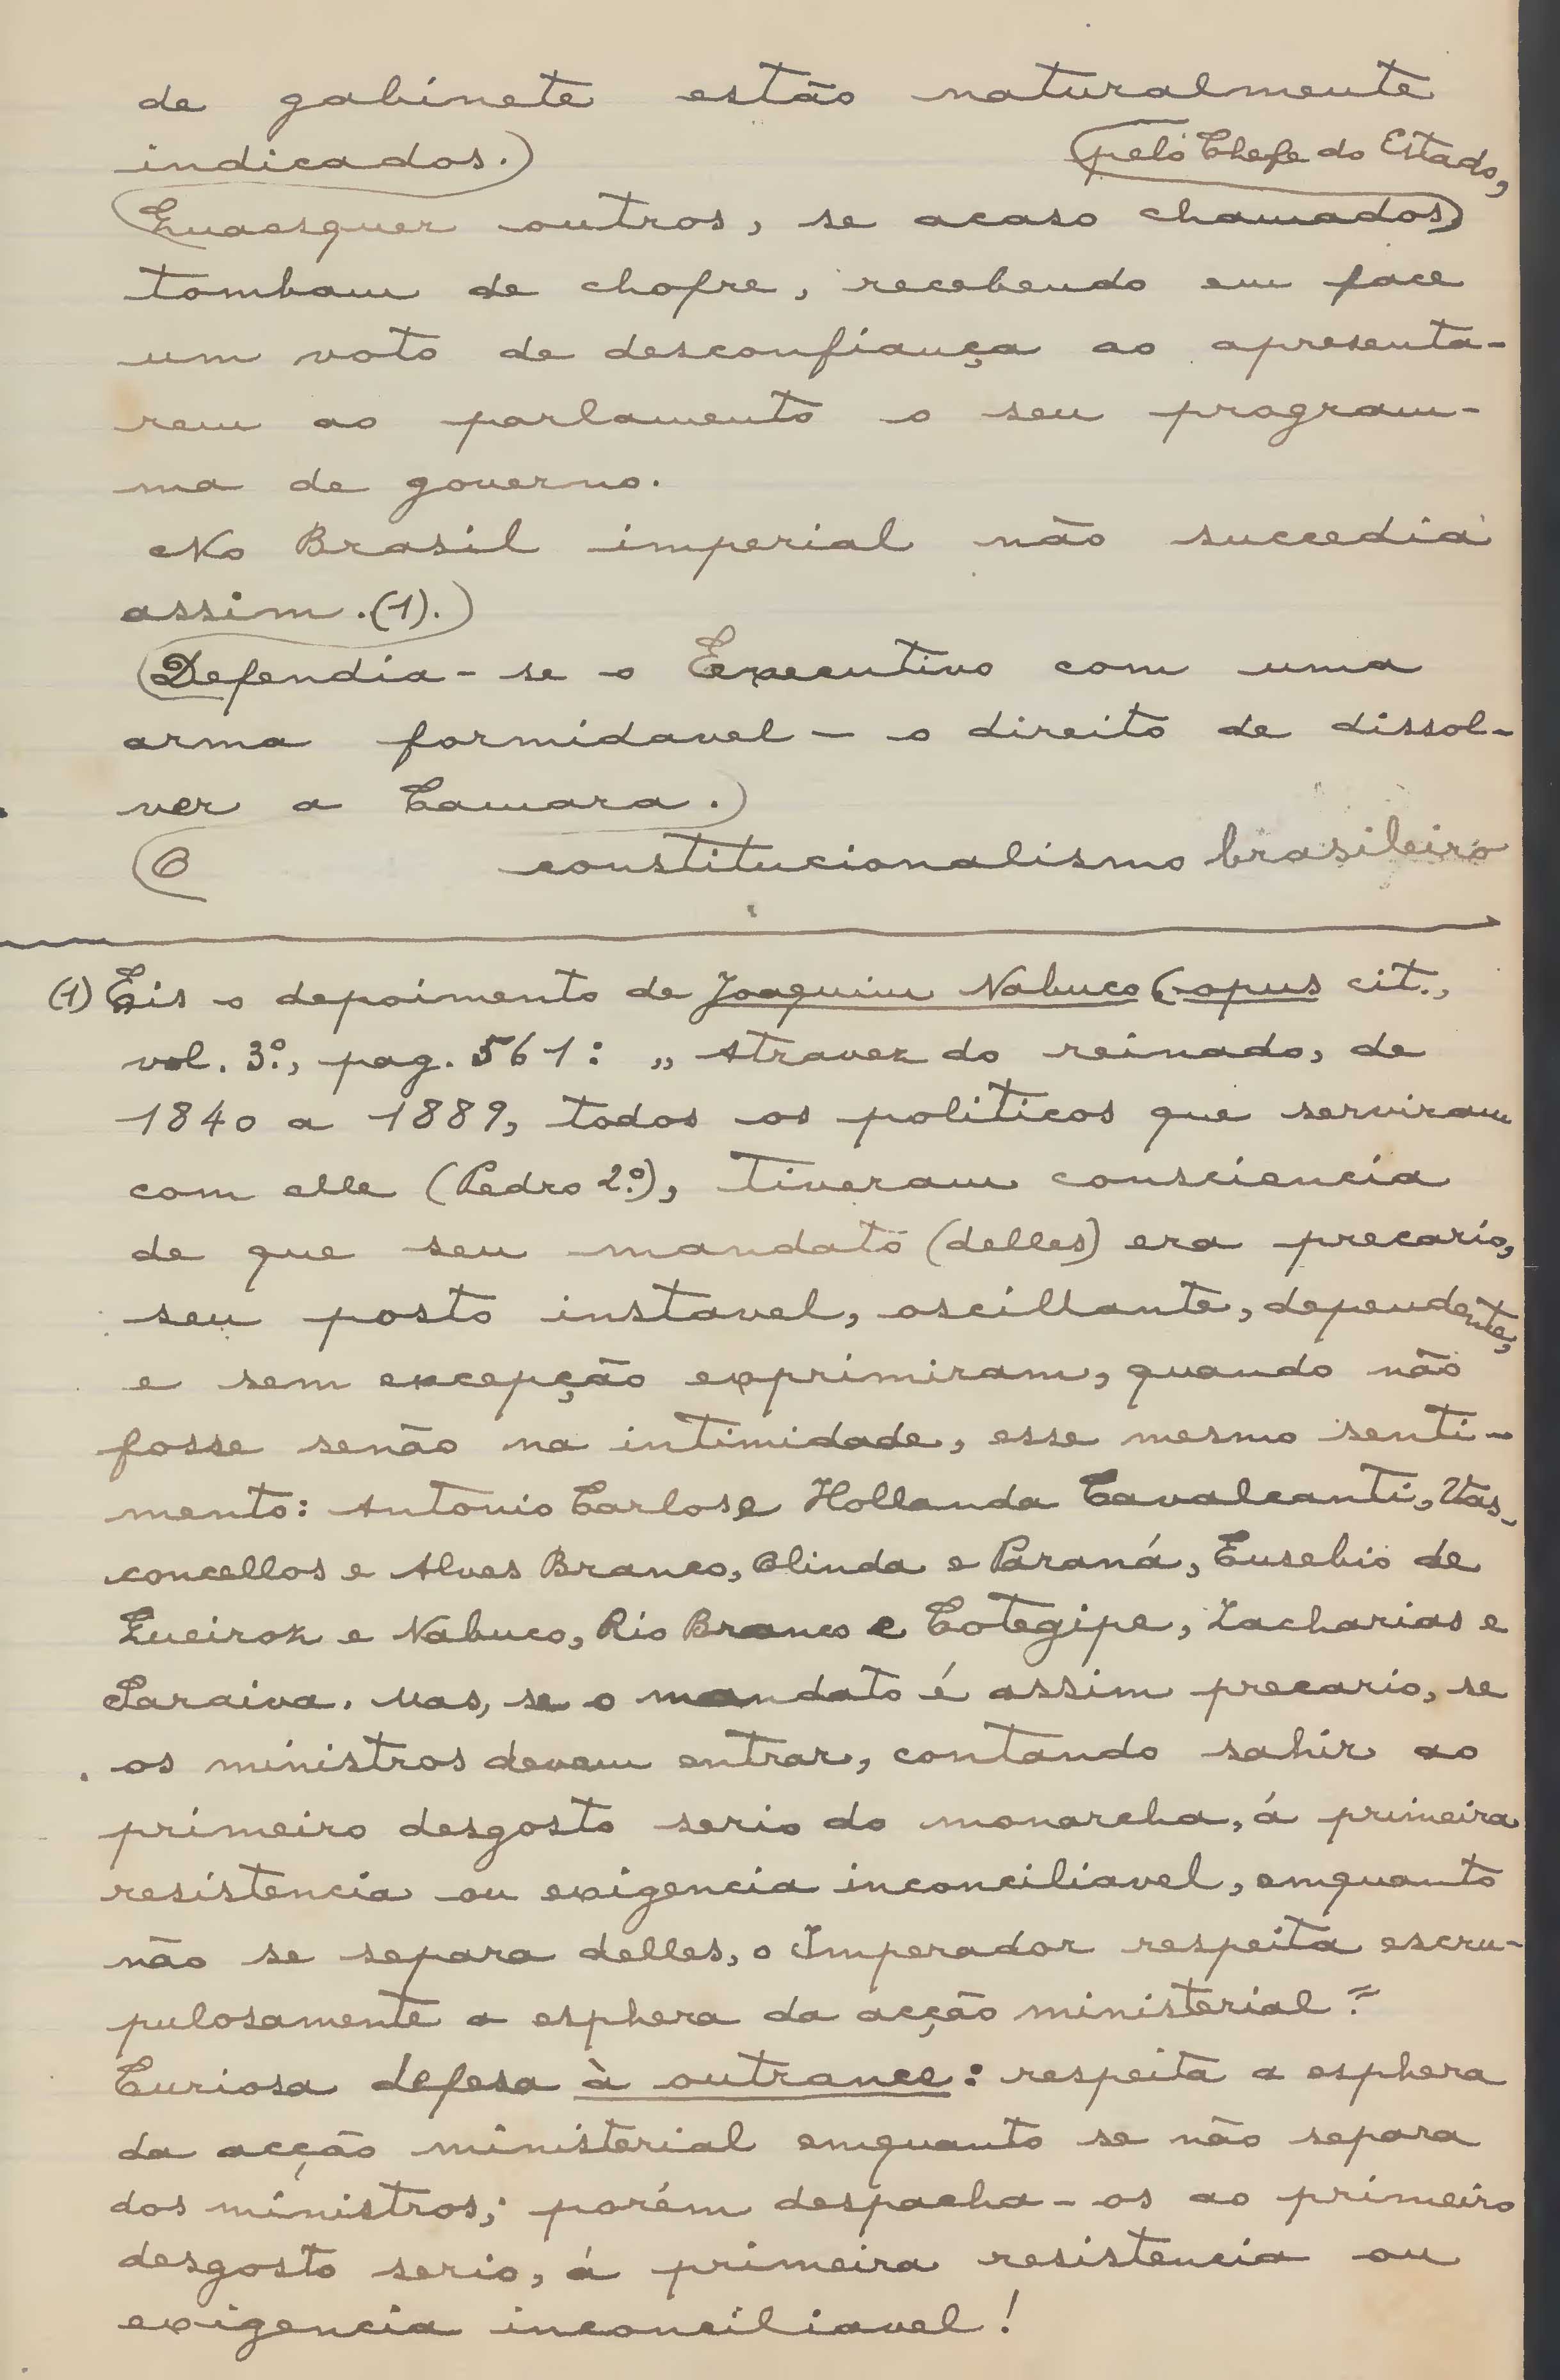 de gabinete estão naturalmente
indicados.)
(pelo Chefe do Estado,
Quaesquer outros, se acaso chamados)
tombam de chofre, recebendo em face
um voto de desconfiança ao apresenta-
rem ao parlamento o seu program-
ma de governo.
No Brasil imperial não succedia
assim.(1).)
(Defendia-se o Executivo com uma
arma formidavel - o direito de dissol-
ver a Camara.)
(O constitucionalismo brasileiro
(1) Eis o depoimento de Joaquim Nabuco (opus cit.,
vol. 3º, pag. 561: „ Atravez do reinado, de
1840 a 1889, todos os politicos que serviram
com elle (Pedro 2º), tiveram consciencia
de que seu mandato (delles) era precario,
seu posto instavel, oscillante, dependente,
e sem excepção exprimiram, quando não
fosse senão na intimidade, esse mesmo senti-
mento: Antonio Carlos e Hollanda Cavalcanti, Vas-
concellos e Alves Branco, Olinda e Paraná, Eusebio de
Queiroz e Nabuco, Rio Branco e Cotegipe, Zacharias e
Saraiva. Mas, se o mandato é assim precario, se
os ministros devem entrar, contando sahir ao
primeiro desgosto serio do monarcha, á primeira
resistencia ou exigencia inconciliavel, emquanto
não se separa delles, o Imperador respeita escru-
pulosamente a esphera da acção ministerial."
Curiosa defesa à outrance: respeita a esphera
da acção ministerial emquanto se não separa
dos ministros; porém despacha-os ao primeiro
desgosto serio, á primeira resistencia ou
exigencia inconciliavel!